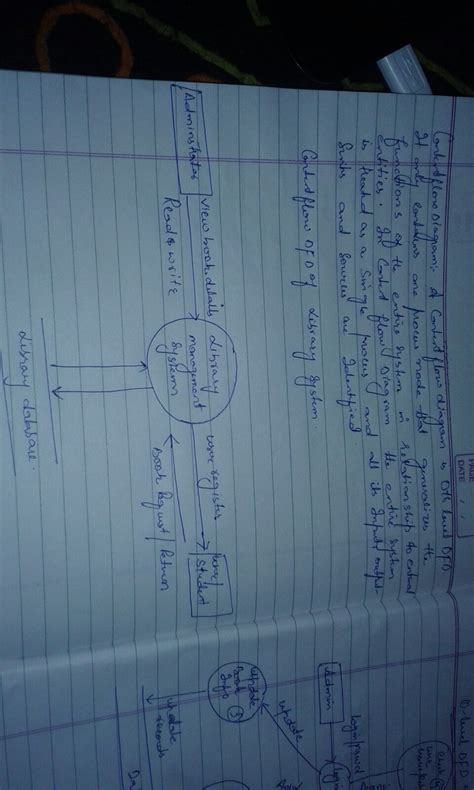 PAGE
DATE
Context flow Diagram:- A Context flow diagram is 0th level DFD
It only contains one process node that generalizes the
functions of the entire system in relationship to external
entities. In Context flow Diagram the entire system
is treated as a Single process and all its Input output
Sinks and sources are Identified
Context flow DFD of Library System
Administrator
View book details
Read & write
Library
management
System
user register
user/
Student
Book Request/Return
Library database
level DFD
Admin
login/
update
update
Book
Info
update
records